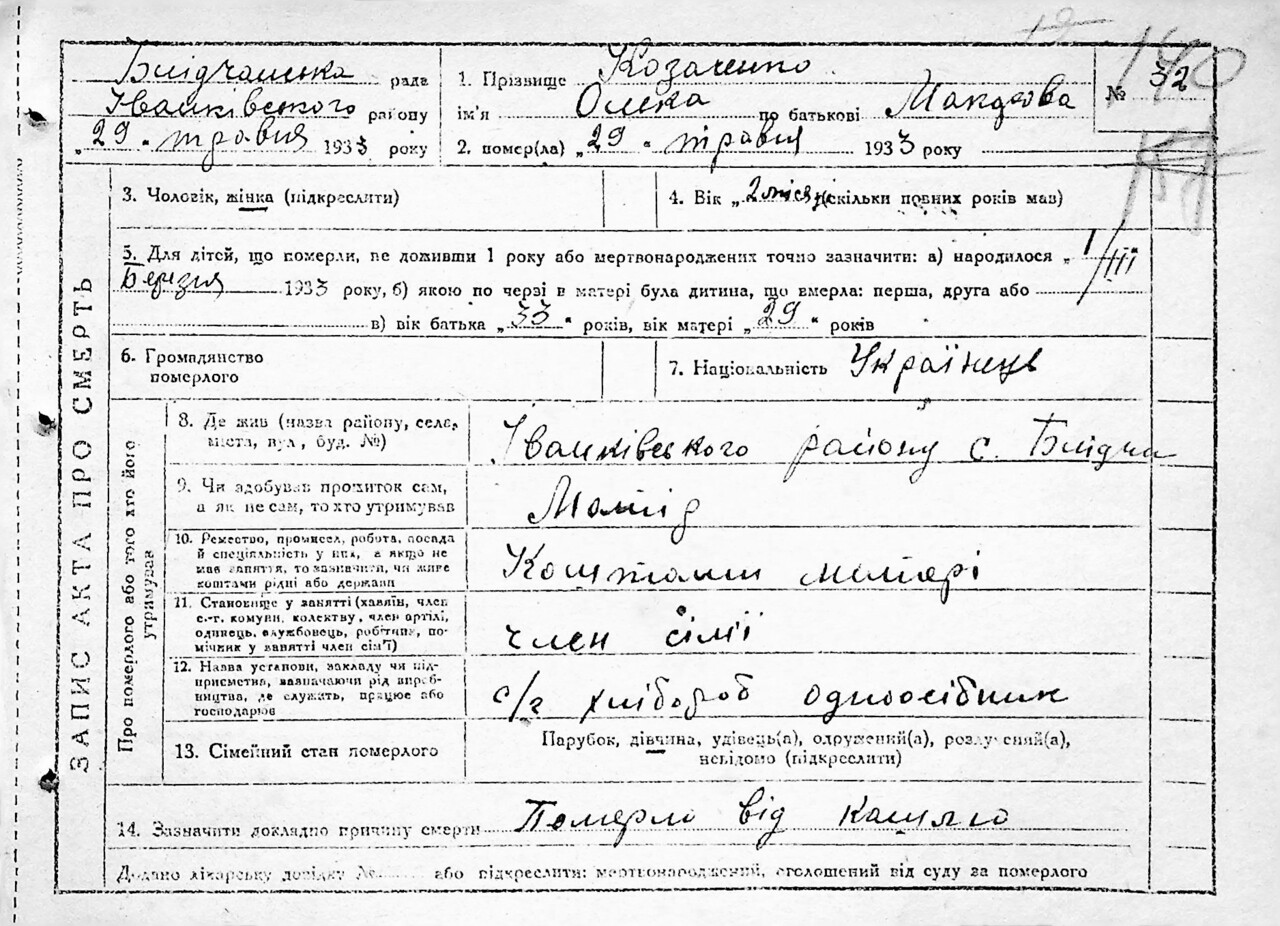 Блідчанська рада
Іванківського району
„29“ травня 1933 року
1. Прізвище Козаченко
ім'я Олека по батькові
2. помер(ла) „29“ травня 1933 року
№ 32
140
3. Чоловік, жінка (підкреслити)
4. Вік „2 міся (скільки повних років мав)
5. Для дітей, що померли, не доживши 1 року або мертвонароджених точно зазначити: а) народилося „1/III“
Березня 1933 року, б) якою по черзі в матері була дитина, що вмерла: перша, друга або
в) вік батька „33“ років, вік матері „29“ років
6. Громадянство
померлого
7. Національність Українець
ЗАПИС АКТА ПРО СМЕРТЬ
Про померлого або того хто його
утримував
8. Де жив (назва району, села,
міста, вул, буд. №)
Іванківського району с. Блідча
9. Чи здобував прожиток сам,
а як не сам, то хто утримував
10. Ремество, промисел, робота, посада
й спеціяльність у них, а якщо не
мав заняття, то зазначити, чи живе
коштами рідні або держави
Коштами матері
11. Становище у занятті (хазяїн, член
с.-г. комуни, колективу, член артілі,
одинець, службовець, робітник, по-
мічник у занятті член сім'ї)
член сімії
12. Назва установи, закладу чи під-
приємства, зазначаючи рід вироб-
ництва, де служить, працює або
господарює
с/г хлібороб одноосібник
13. Сімейний стан померлого
Парубок, дівчина, удівець(а), одружений(а), розлучений(а),
невідомо (підкреслити)
14. Зазначити докладно причину смерти Померло від Кашлю
Додано лікарську довідку № або підкреслити: мертвонароджений, оголошений від суду за померлого